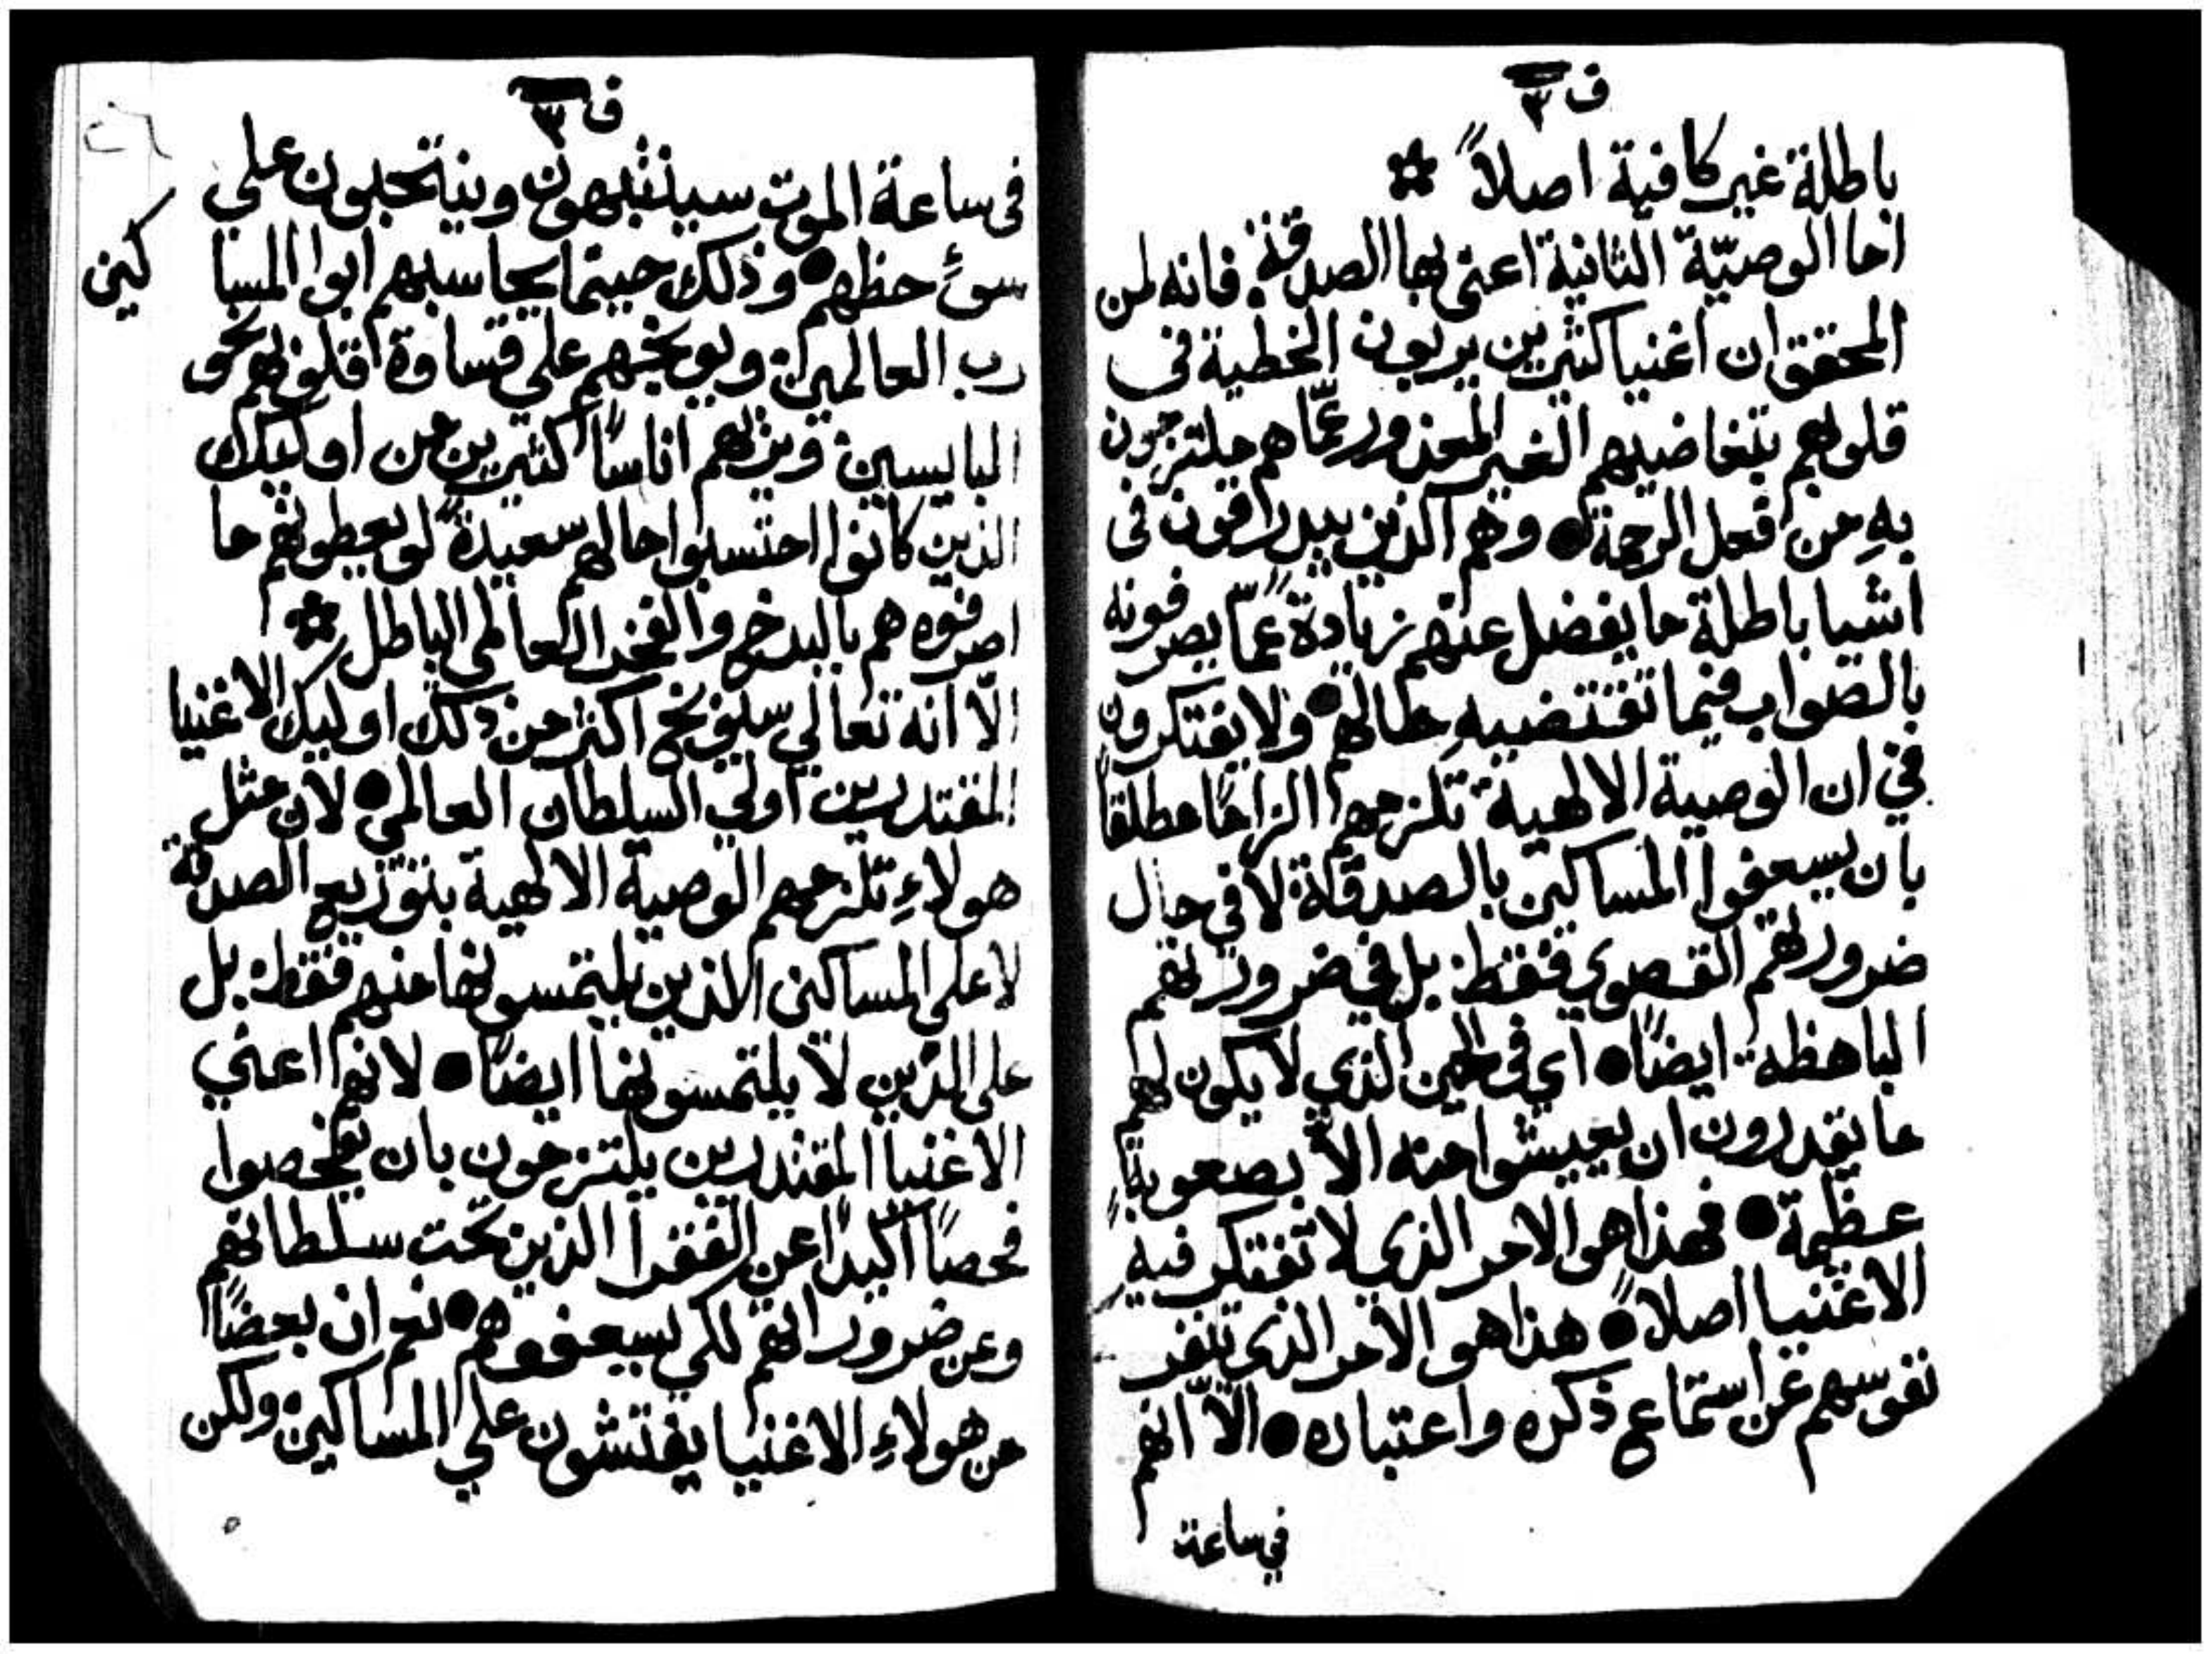 ف ٣
باطلة غير كافية اصلاً
اما الوصيّة الثانية اعني بها الصدقة. فانه لمن
المحقق ان اغنيا كثيرين يربون الخطية في
قلوبهم بتغاضيهم الغير المعذور عمّا هم ملتزمون
بهِ من فعل الرحمة ● وهم الذين يبدرقون في
اشيا باطلة ما يفضل عنهم زيادة عمّا يصرفونه
بالصواب فيما تقتضيهِ حالهم ● ولا يفتكرون
في ان الوصية الالهية تلزمهم الزامًا مطلقاً
بان يسعفوا المساكين بالصدقة لا في حال
ضرورتهم القصوي فقط بل في ضرورتهم
الباهظة ايضًا ● اي في الحين الذي لا يكون لهم
ما يقدرون ان يعيشوا منه الاّ بصعوبة
عظيمة ● فهذا هو الامر الذي لا تفتكر فيه
الاغنيا اصلاً ● هذا هو الامر الذي تنفر
نفوسهم عن استماع ذكره واعتباره ● الاّ انهم
في ساعة
ف ٣
في ساعة الموت سينتبهون وينتحبون علي
سوءِ حظهم ● وذلك حينما يحاسبهم ابوا المساكين
رب العالمين ويوبخهم علي قساوة قلوبهم نحو
البايسين ويريهم اناسًا كثيرين من اوليك
الذين كانوا احتسبوا حالهم سعيدة لو يعطونهم ما
اصرفوه هم بالبدخ والفخر العالمي الباطل
الاّ انه تعالي سيوبخ اكثر من ذلك اوليك الاغنيا
المقتدرين اولي السلطان العالمي ● لان مثل
هولاءِ تلزمهم الوصية الالهية بتوزيع الصدقة
لا علي المساكين الذين يلتمسونها منهم فقط بل
علي الذين لا يلتمسونها ايضًا ● لانهم اعني
الاغنيا المقتدرين يلتزمون بان يفحصوا
فحصًا اكيدًا عن الفقرا الذين تحت سلطانهم
وعن ضروراتهم لكي يسعفوهم ● نعم ان بعضًا
من هولاءِ الاغنيا يفتشون علي المساكين ولكن